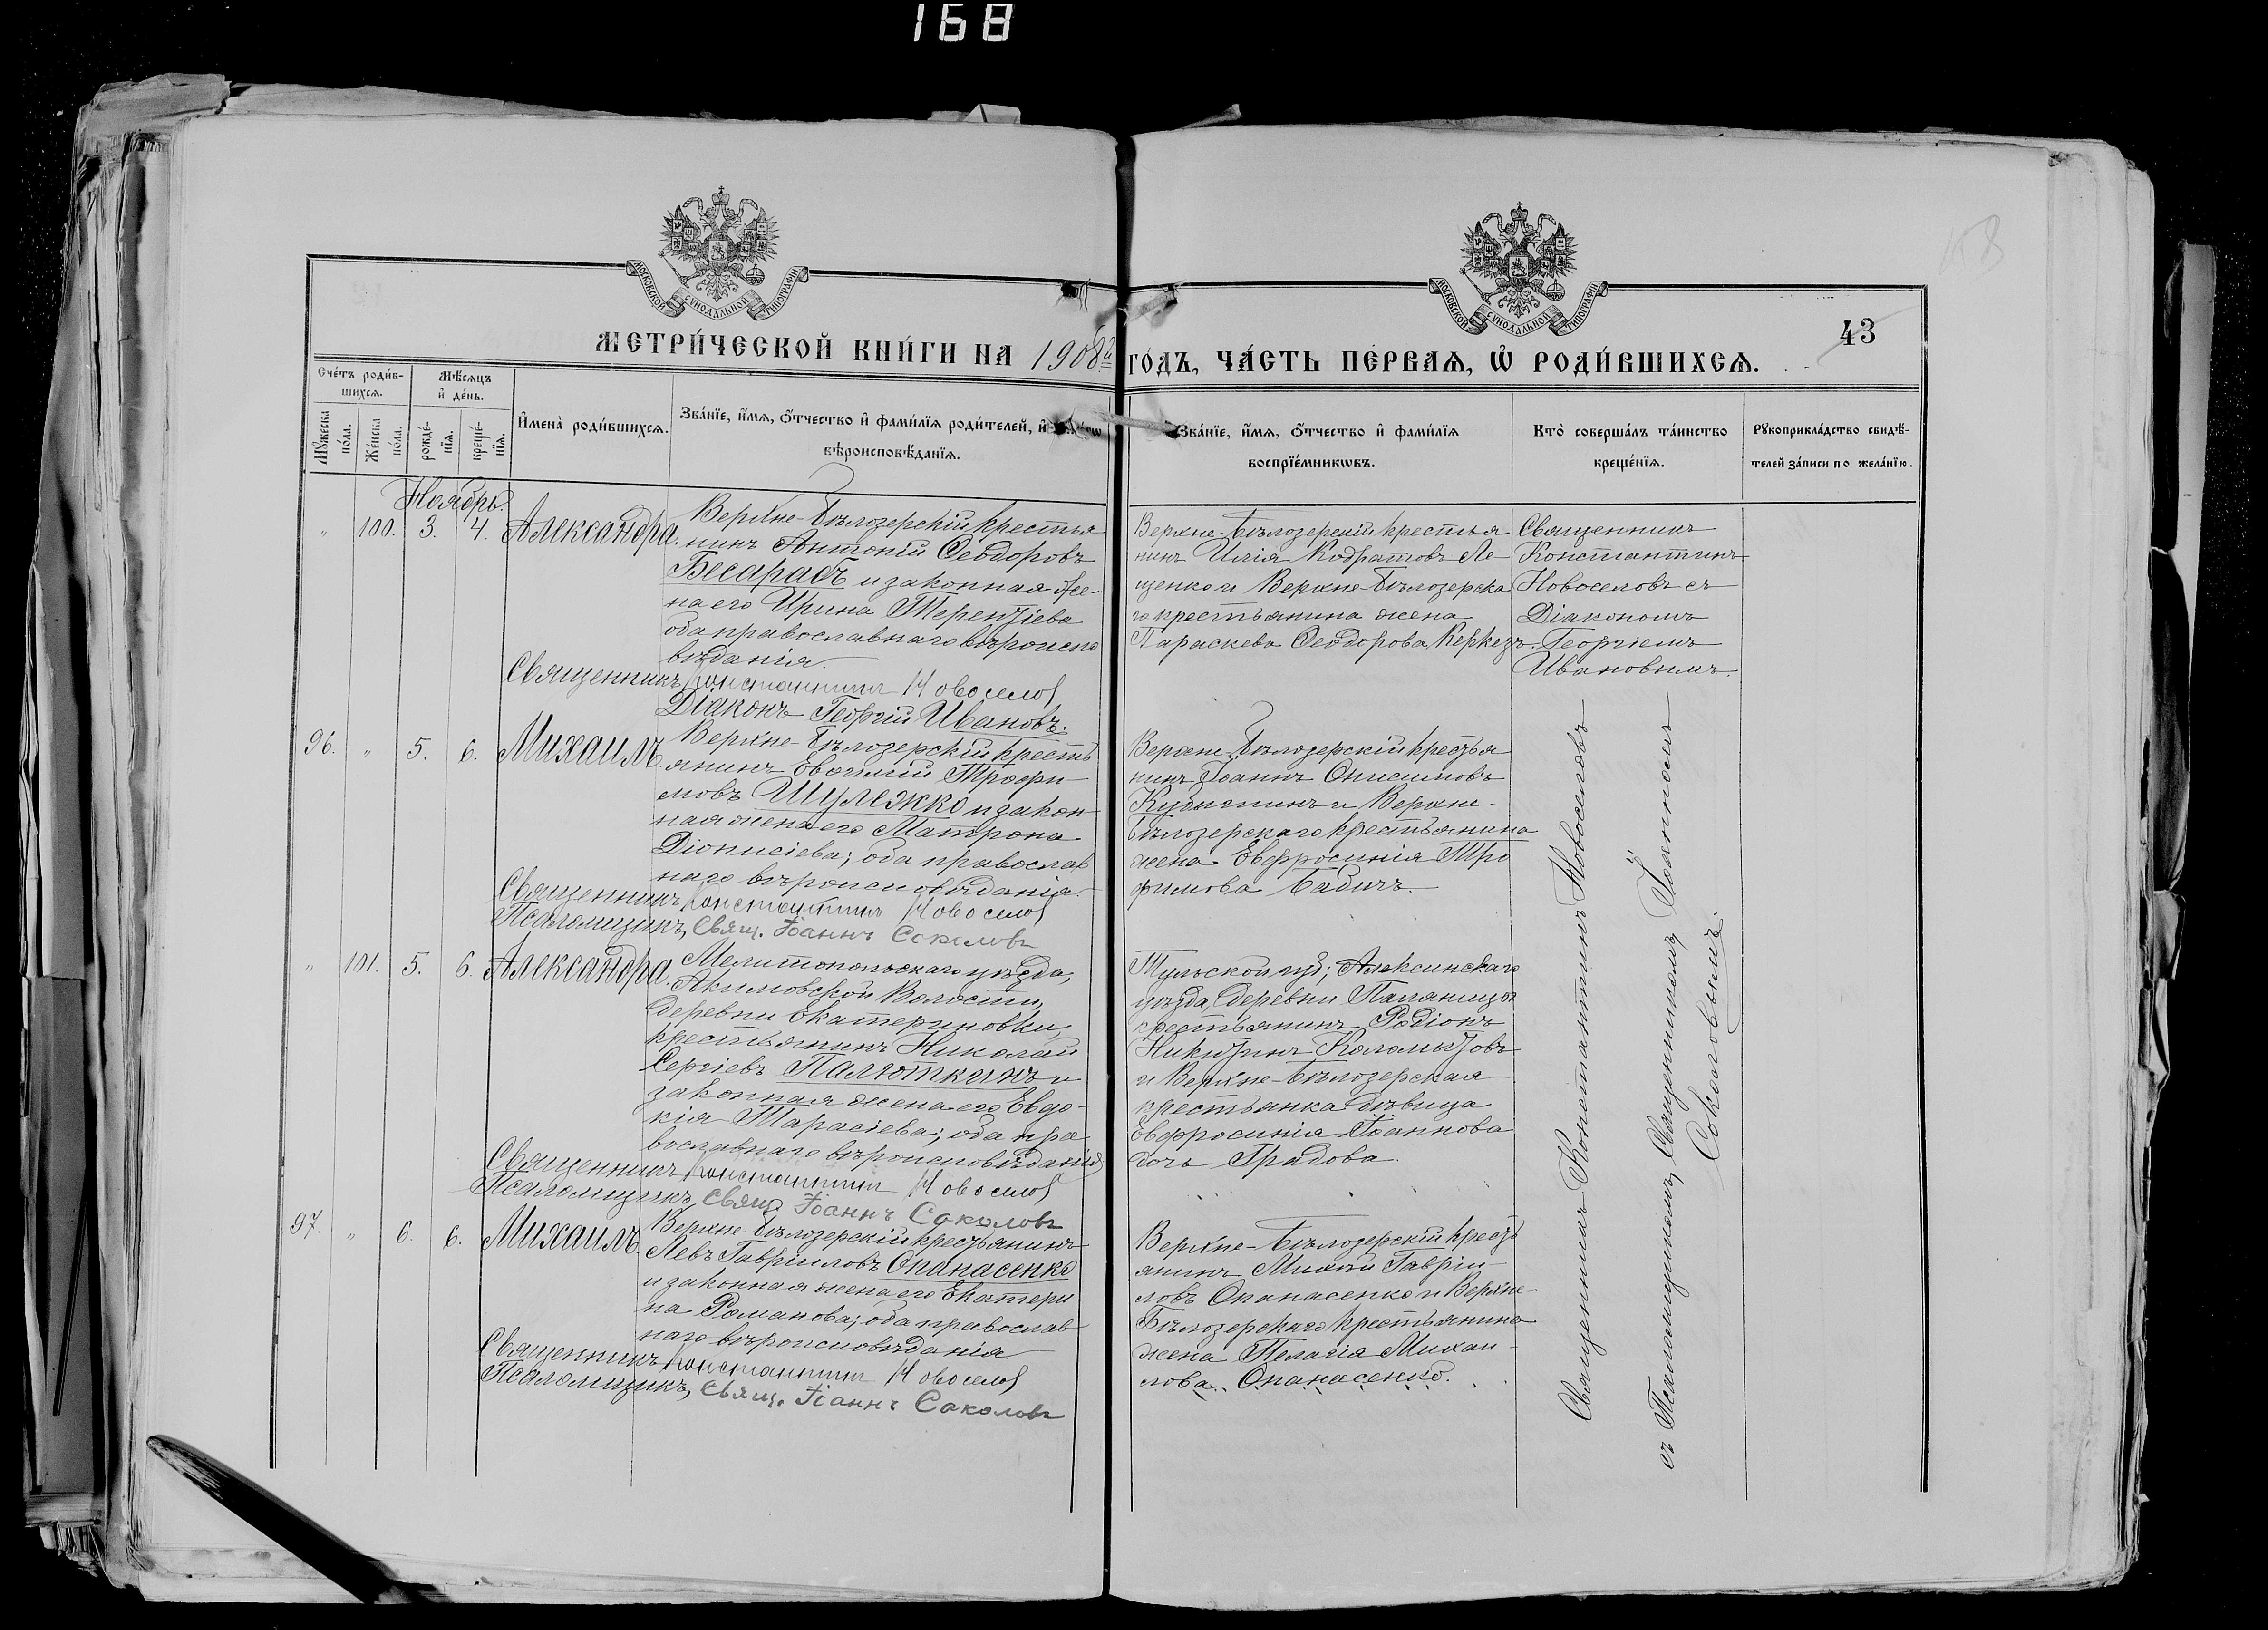 168
МОСКОВСКОЙ СУНОДАЛЬНОЙ ТИПОГРАФІИ
МОСКОВСКОЙ СУНОДАЛЬНОЙ ТИПОГРАФІИ
43
МЕТРИ́ЧЕСКОЙ КНИ́ГИ НА 1908й ГО́ДЪ, ЧА́СТЬ ПЕ́РВАѦ, Ѡ РОДИ́ВШИХСѦ.
Сче́тъ роди́в-
шихсѧ.
Мꙋ́жеска по́ла.
Же́нска по́ла.
Мѣ́сѧцъ
и҆ де́нь.
рожде́-
нїѧ.
креще́-
нїѧ.
И҆мена̀ роди́вшихсѧ.
Зва́нїе, и҆́мѧ, ѻ҆́тчество и҆ фами́лїѧ роди́телей, и҆
вѣроисповѣ́данїѧ.
Зва́нїе, и҆́мѧ, ѻ҆́тчество и҆ фами́лїѧ
воспрїе́мникѡвъ.
Кто̀ соверша́лъ та́инство
креще́нїѧ.
Рꙋкоприкла́дство свидѣ́-
телей за́писи по жела́нїю.
Ноябрь.
" 100. 3. 4. Александра.
Верхне-Бѣлозерскій крестья
нинъ Антоній Ѳеодоровъ
Бесарабъ и законная же-
на его Ирина Терентіева
оба православнаго вѣроиспо
вѣданія.
Священникъ Константинъ Новоселов
Діаконъ Георгій Ивановъ.
Верхне-Бѣлозерскій крестья
нинъ Илія Кодратовъ Ле-
щенко и Верхне-Бѣлозерска
го крестьянина жена
Параскева Ѳеодорова Керкезъ.
Священникъ
Константинъ
Новоселовъ съ
Діакономъ
Георгіемъ
Ивановымъ.
96. " 5. 6. Михаилъ.
Верхне-Бѣлозерскій кресть
янинъ Евѳимій Трофи-
мовъ Шулежко и закон-
ная жена его Матрона
Діонисіева; оба православ
наго вѣроисповѣданія.
Священникъ Константинъ Новоселов
Псаломщикъ, Свящ. Іоаннъ Соколовъ
Верхне-Бѣлозерскій крестья
нинъ Іоаннъ Онисимовъ
и Верхне-
Бѣлозерскаго крестьянина
жена Евфросинія Тро
фимова Бабичъ.
" 101. 5. 6. Александра.
Мелитопольскаго уѣзда,
Акимовской Волости,
деревни Екатериновки,
крестьянинъ Николай
Сергіевъ Палюткинъ и
законная жена его Евдо-
кія Тарасіева; оба пра
вославнаго вѣроисповѣданія
Священникъ Константинъ Новоселов
Псаломщикъ, Свящ. Іоаннъ Соколовъ
Тульской губ; Алексинскаго
уѣзда, деревни
крестьянинъ Родіонъ
Никитинъ Коломытовъ
и Верхне-Бѣлозерская
крестьянка дѣвица
Евфросинія Іоаннова
дочь Градова.
97. " 6. 6. Михаилъ.
Верхне-Бѣлозерскій крестьянинъ
Левъ Гавріиловъ Опанасенко
и законная жена его Екатери
на Романова; оба православ
наго вѣроисповѣданія
Священникъ Константинъ Новоселов
Псаломщикъ, Свящ. Іоаннъ Соколовъ
Верхне-Бѣлозерскій кресть
янинъ Гавріи-
ловъ Опанасенко и Верхне-
Бѣлозерскаго крестьянина
жена Пелагія Михаи-
лова Опанасенко.
Священникъ Константинъ Новоселовъ
съ Псаломщикомъ, Священникомъ Іоанномъ
Соколовымъ.